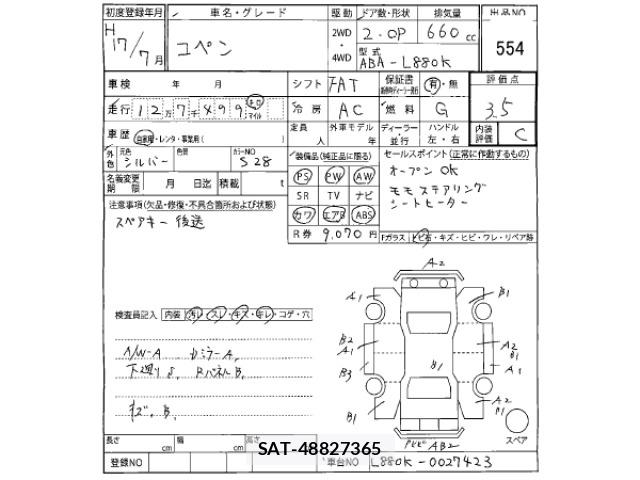 初度登録年月 車名・グレード 駆動 ドア数・形状 排気量 出品NO
H17/7月 コペン 2WD・4WD 2.OP 660cc 554
型式 ABA-L880K
車検 年 月 シフト FAT 保証書 有・無 評価点
走行 127499 キロ マイル 冷房 AC 燃料 G 3.5
定員 人 外車モデル 年 ディーラー・並行 ハンドル 左・右 内装評価 C
車歴 自家用・レンタ・事業用( )
外色 元色 シルバー 色替 カラーNO S28
装備品(純正品に限る) セールスポイント(正常に作動するもの)
名義変更期限 月 日迄 積載 t
PS PW AW オープンOK
SR TV ナビ モモステアリング
カワ エアB ABS シートヒーター
注意事項(欠品・修復・不具合箇所および状態)
スペアキー後送
R券 9,070円 Fガラス ヒビ石・キズ・ヒビ・ワレ・リペア跡
A2
A1 B1
検査員記入 内装 汚レ・スレ・キズ・キレ・コゲ・穴
N/W-A
B2 A1 B1 A2 B1
B3 A1
キズ、B.
B1 A2 B1
AB2 スペア
長さ cm 幅 cm 高さ
SAT-48827365
登録NO 車台NO L880K-0027423